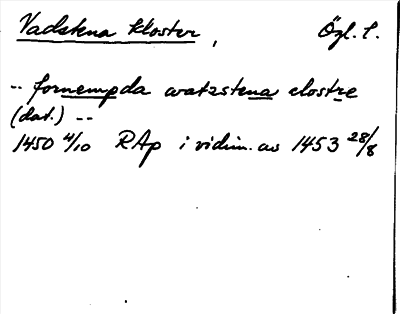 Vadstena kloster, Ögl. l.
-- fornempda watzstena clostre
(dat.) --
1450 4/10 RAp i vidim. av 1453 28/8